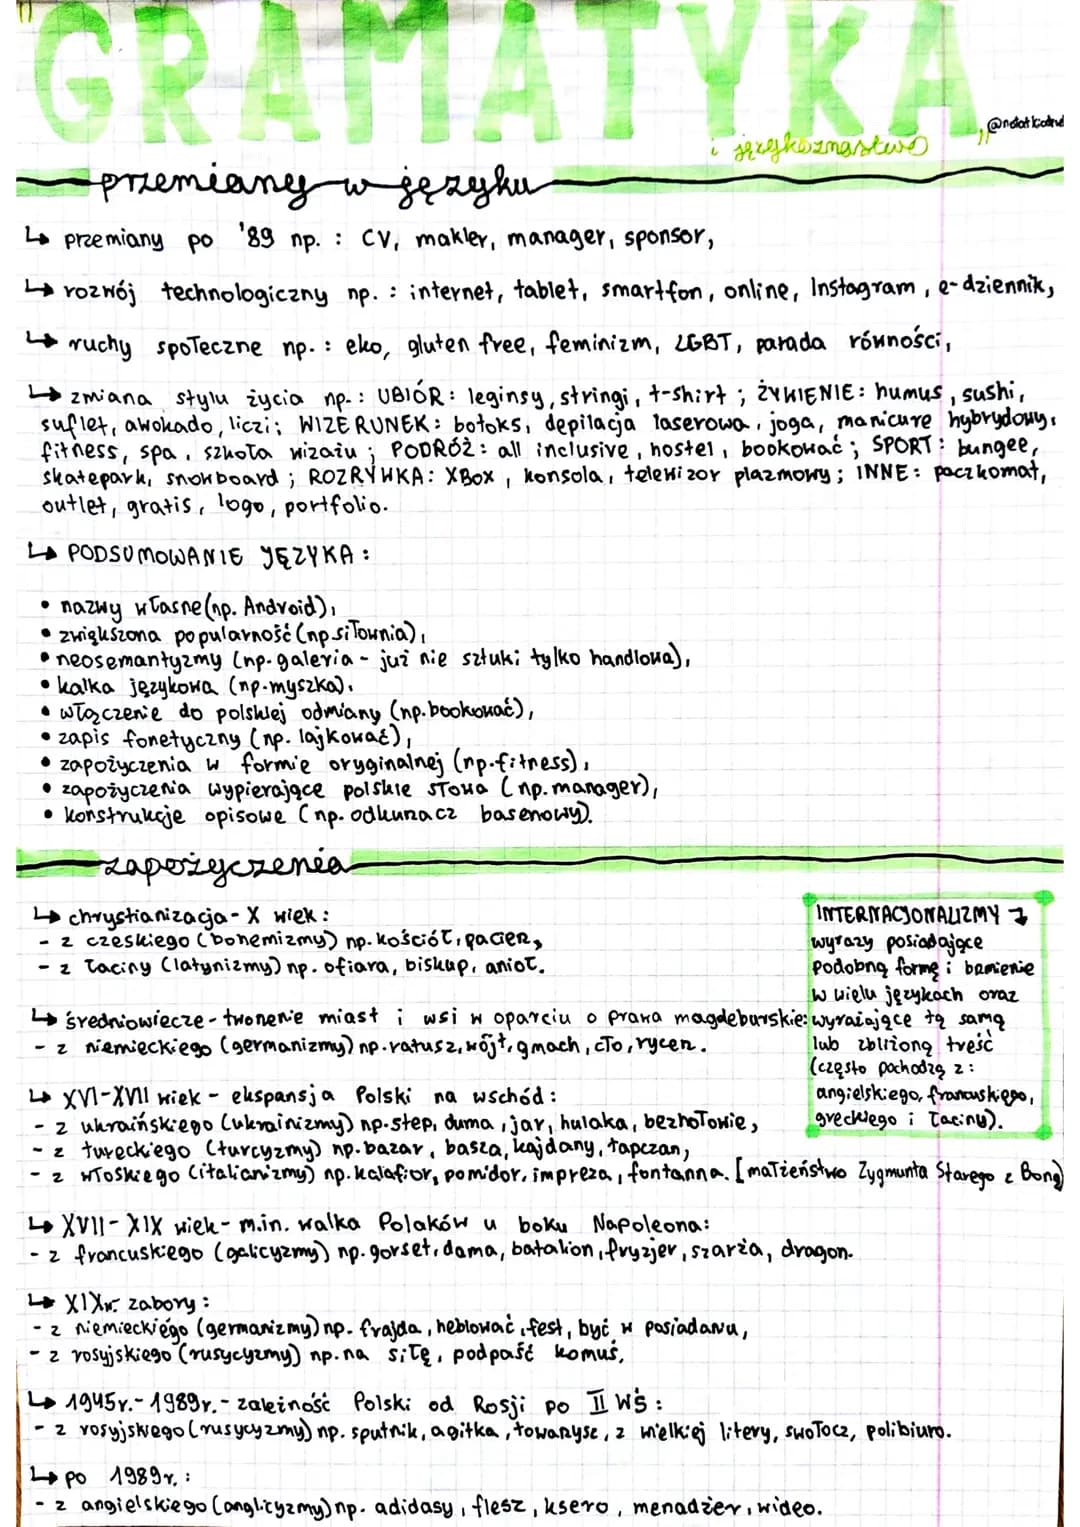 GRAMATYKA
i językoznastwo
przemiany w języku
↳ przemiany po '89 np. : CV, makler, manager, sponsor,
↳ rozwój technologiczny np. : internet, tablet, smartfon, online, Instagram, e-dziennik,
↳ ruchy społeczne np. : eko, gluten free, feminizm, LGBT, parada równości,
↳ zmiana stylu życia np. : UBIÓR: leginsy, stringi, t-shirt ; ŻYWIENIE: humus, sushi,
suflet, awokado, liczi; WIZERUNEK: botoks, depilacja laserowa, joga, manicure hybrydowy,
fitness, spa, szkoła wizażu ; PODRÓŻ: all inclusive, hostel, bookować ; SPORT: bungee,
skatepark, snowboard ; ROZRYWKA: XBox, konsola, telewizor plazmowy ; INNE: paczkomat,
outlet, gratis, logo, portfolio.
↳ PODSUMOWANIE JĘZYKA :
• nazwy własne (np. Android),
• zwiększona popularność (np siłownia),
• neosemantyzmy (np. galeria - już nie sztuki tylko handlowa),
• kalka językowa (np. myszka),
• włączenie do polskiej odmiany (np. bookować),
• zapis fonetyczny (np. lajkować),
• zapożyczenia w formie oryginalnej (np. fitness),
• zapożyczenia wypierające polskie słowa (np. manager),
• konstrukcje opisowe (np. odkurzacz basenowy).
zapożyczenia
↳ chrystianizacja - X wiek :
- z czeskiego (bohemizmy) np. kościół, pacierz,
- z łaciny (latynizmy) np. ofiara, biskup, anioł.
↳ średniowiecze - tworzenie miast i wsi w oparciu o prawa magdeburskie:
- z niemieckiego (germanizmy) np. ratusz, wójt, gmach, cło, rycerz.
INTERNACJONALIZMY
wyrazy posiadające
podobną formę i brzmienie
w wielu językach oraz
wyrażające tę samą
lub zbliżoną treść
(często pochodzą z :
angielskiego, francuskiego,
greckiego i łaciny).
↳ XVI-XVII wiek - ekspansja Polski na wschód :
- z ukraińskiego (ukrainizmy) np. step, duma, jar, hulaka, bezhołowie,
- z tureckiego (turcyzmy) np. bazar, basza, kajdany, tapczan,
- z włoskiego (italianizmy) np. kalafior, pomidor, impreza, fontanna. [małżeństwo Zygmunta Starego z Boną]
↳ XVII-XIX wiek - m.in. walka Polaków u boku Napoleona:
- z francuskiego (galicyzmy) np. gorset, dama, batalion, fryzjer, szarża, dragon.
↳ XIX w. zabory :
- z niemieckiego (germanizmy) np. frajda, heblować, fest, być w posiadaniu,
- z rosyjskiego (rusycyzmy) np. na siłę, podpaść komuś.
↳ 1945r.- 1989r. - zależność Polski od Rosji po II WŚ :
- z rosyjskiego (rusycyzmy) np. sputnik, agitka, towarzysz, z wielkiej litery, swołocz, polibiuro.
↳ po 1989r. :
- z angielskiego (anglicyzmy) np. adidasy, flesz, ksero, menadżer, wideo.